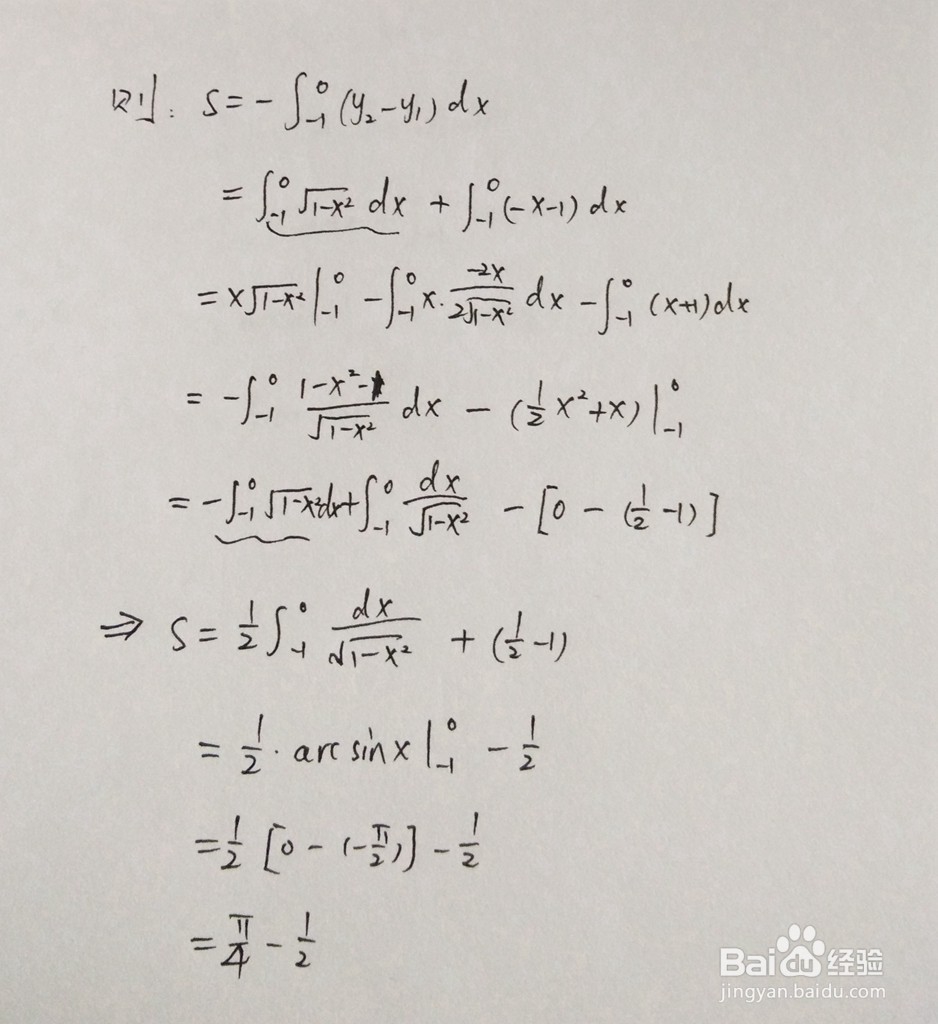 则: S = -∫₋₁⁰ (y₂-y₁) dx
= ∫₋₁⁰ √(1-x²) dx + ∫₋₁⁰ (-x-1) dx
= x√(1-x²) |₋₁⁰ - ∫₋₁⁰ x· (-2x)/(2√(1-x²)) dx - ∫₋₁⁰ (x+1) dx
= -∫₋₁⁰ (1-x²-1)/√(1-x²) dx - (½x²+x) |₋₁⁰
= -∫₋₁⁰ √(1-x²) dx + ∫₋₁⁰ dx/√(1-x²) - [0 - (½-1)]
⇒ S = ½ ∫₋₁⁰ dx/√(1-x²) + (½-1)
= ½ · arc sin x |₋₁⁰ - ½
= ½ [0 - (-π/2)] - ½
= π/4 - ½
Baidu经验
jingyan.baidu.com